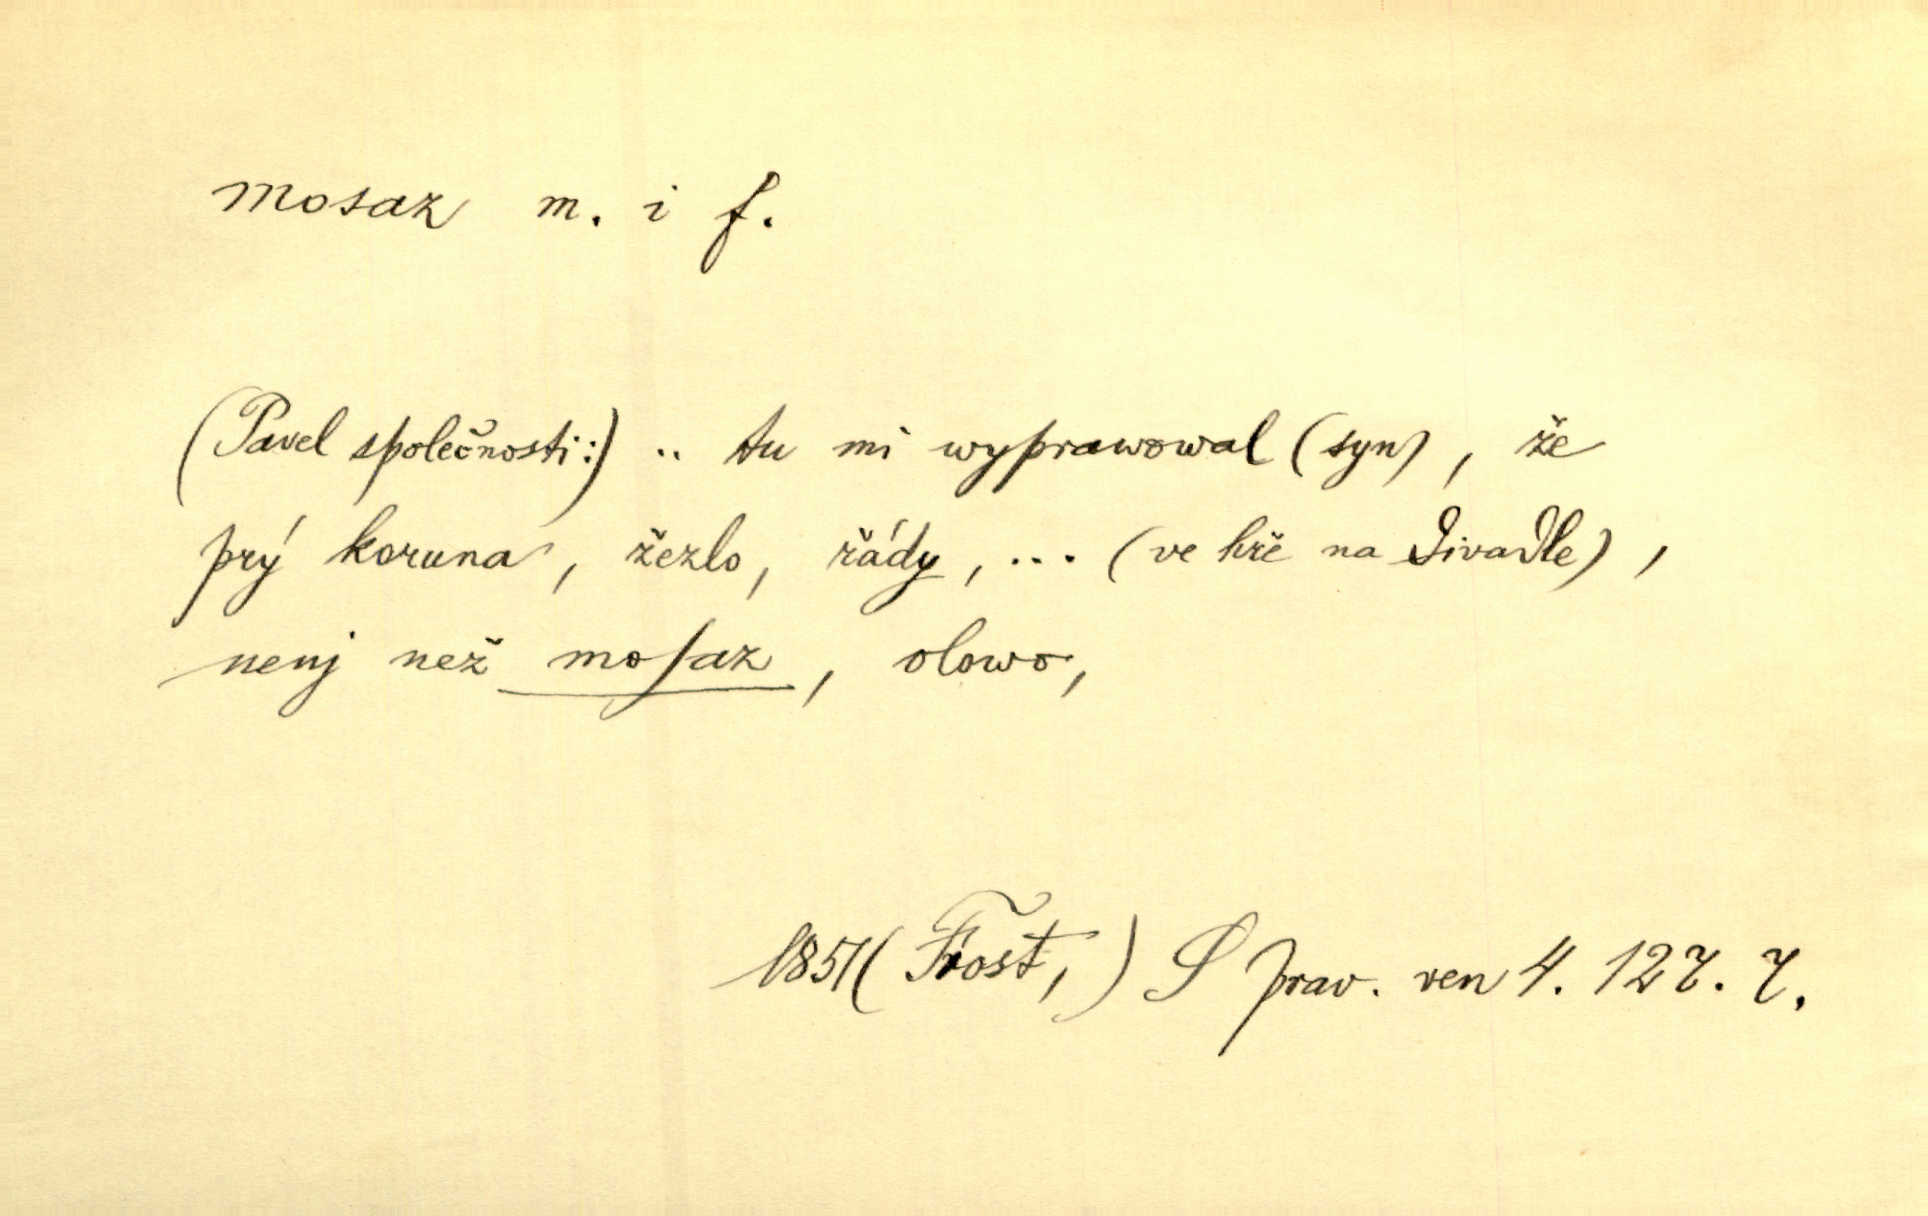 mosaz m. i f.
(Pavel společnosti:) .. tu mi wyprawowal (syn), že
prý koruna, žezlo, řády, ... (ve hře na divadle),
nenj než moſaz, olowo,
1851 (Frost,) S prav. ven 4. 127. 7.